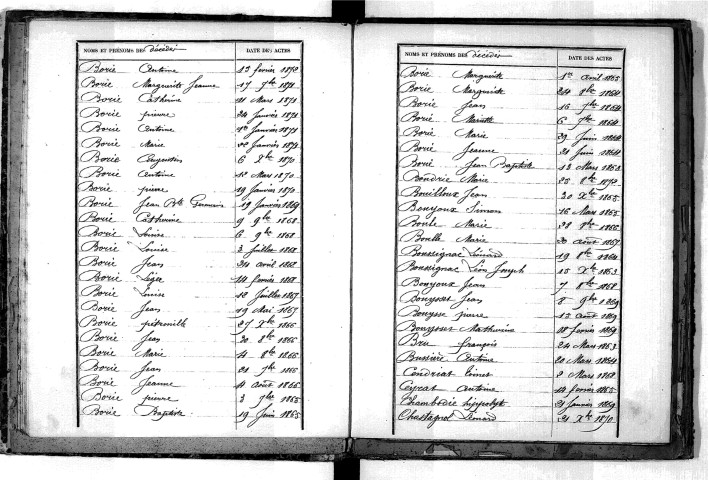 NOMS ET PRÉNOMS DES décédés DATE DES ACTES
Borie Antoine 13 février 1872
Borie Marguerite Jeanne 17 7bre 1871
Borie Catherine 11 Mars 1871
Borie pierre 24 Janvier 1871
Borie Antoine 1871
Borie Marie Janvier 1871
Borie 6 Xbre 1870
Borie Antoine 12 Mars 1870
Borie pierre 19 Janvier 1870
Borie Jean Bte 19 Janvier 1869
Borie Catherine 9 9bre 1868
Borie Louise 6 9bre 1868
Borie Louise 3 Juillet 1868
Borie Jean 24 avril 1868
Borie 14 février 1868
Borie Louise 12 Juillet 1867
Borie Jean 19 Mai 1867
Borie pétronille 27 Xbre 1866
Borie Jean 20 8bre 1866
Borie Marie 4 8bre 1866
Borie Jean 21 7bre 1866
Borie Jeanne 4 août 1866
Borie pierre 3 7bre 1865
Borie Baptiste 19 Juin 1865
NOMS ET PRÉNOMS DES décédés DATE DES ACTES
Borie Marguerite 1er avril 1865
Borie Marguerite 24 8bre 1864
Borie Jean 16 7bre 1864
Borie 6 7bre 1864
Borie Marie 29 Juin 1864
Borie Jeanne 21 Juin 1864
Borie Jean Baptiste 13 Mars 1863
Bondrie Marie 25 8bre 1872
Bouilloux Jean 20 Xbre 1865
Bonyoux Simon 16 Mars 1865
Boule Marie 28 8bre 1866
Boulle Marie 20 août 1867
Boussignac Léonard 19 8bre 1864
Boussignac Léon Joseph 15 Xbre 1863
Bouyoux Jean 7 8bre 1868
Bouysset Jean 8 9bre 1869
Bouysse pierre 12 août 1869
Bouysset Mathurine février 1869
Bru françois 24 Mars 1863
Bussière Antoine 20 Mars 1864
Cendriat 2 Mars 1868
Ceyrat Antoine 14 février 1865
Chambodie hippolyte 21 Janvier 1869
Chastagnol Léonard 21 Xbre 1870